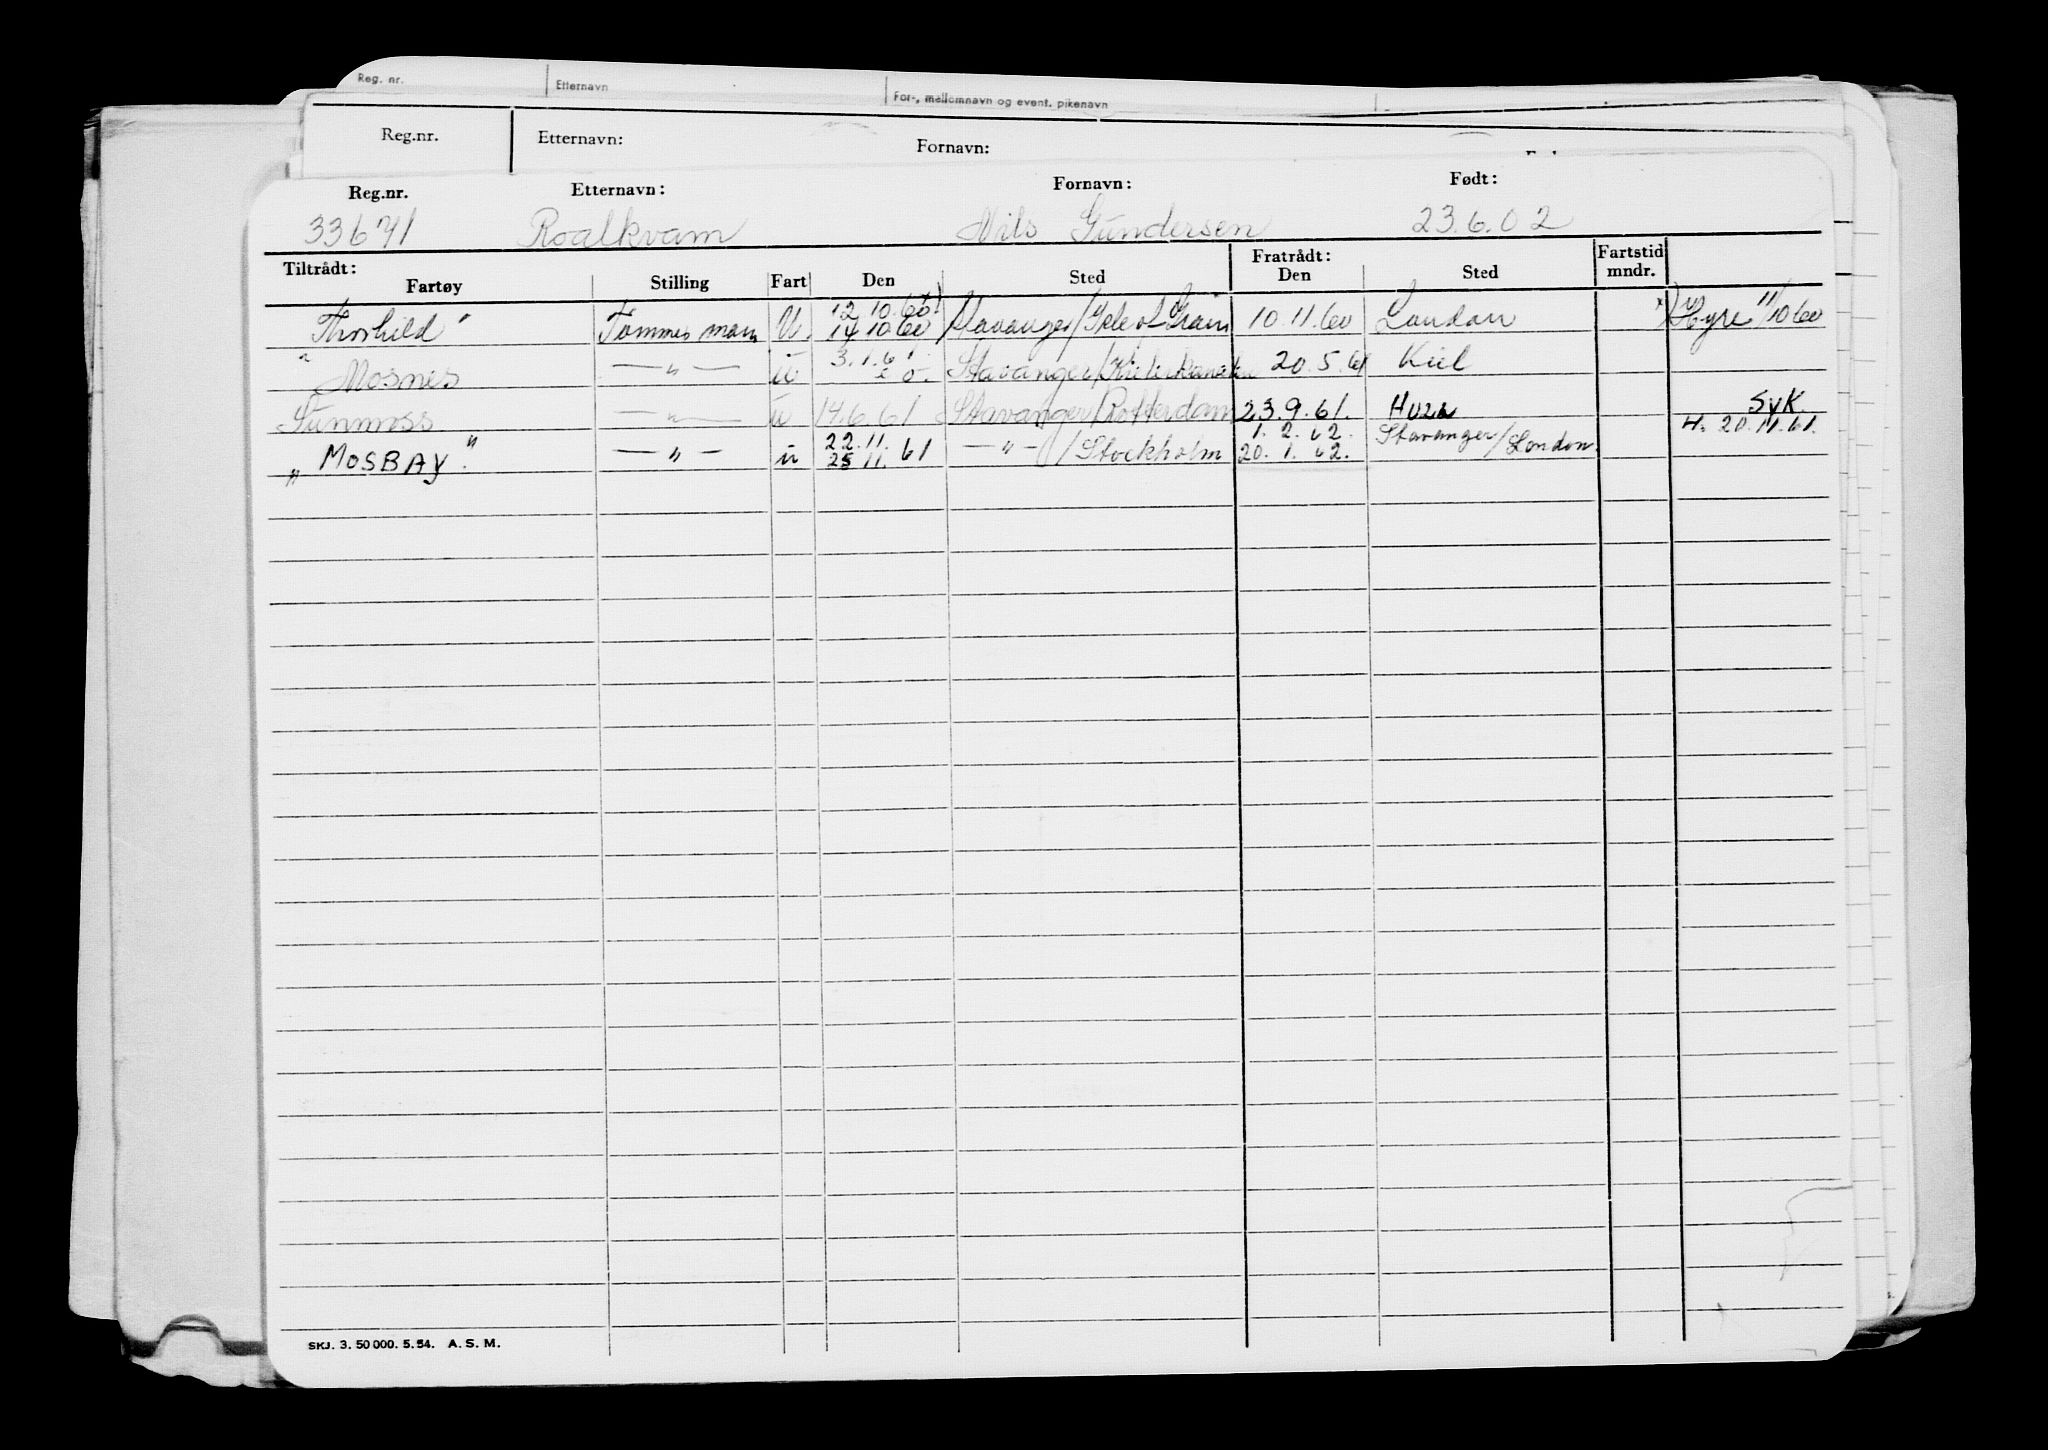 Reg. nr. Etternavn For-, mellomnavn og event. pikenavn
Reg.nr. Etternavn: Fornavn:
Reg.nr. Etternavn: Fornavn: Født:
33671 Roalkvam Nils Gundersen 23.6.02
Tiltrådt: Fratrådt: Fartstid
Fartøy Stilling Fart Den Sted Den Sted mndr.
12 10.60 x)
Thorshild" Tømmermann U. 14 10 60 Stavanger/Isle of Grain 10.11.60 London x) Hyre 11/10 60
3.1.61
" Mosnes — " — u s.d. Stavanger/Kielerkanalen 20.5.61 Kiel
Gunness — " — u 14.6.61 Stavanger/Rotterdam 23.9.61. Hull Syk.
22.11. 1.2.62. Stavanger/London H. 20.11.61.
" MOSBAY." — " — u 25 11. 61 — " — /Stockholm 20.1.62.
SKJ. 3. 50 000. 5. 54. A. S. M.